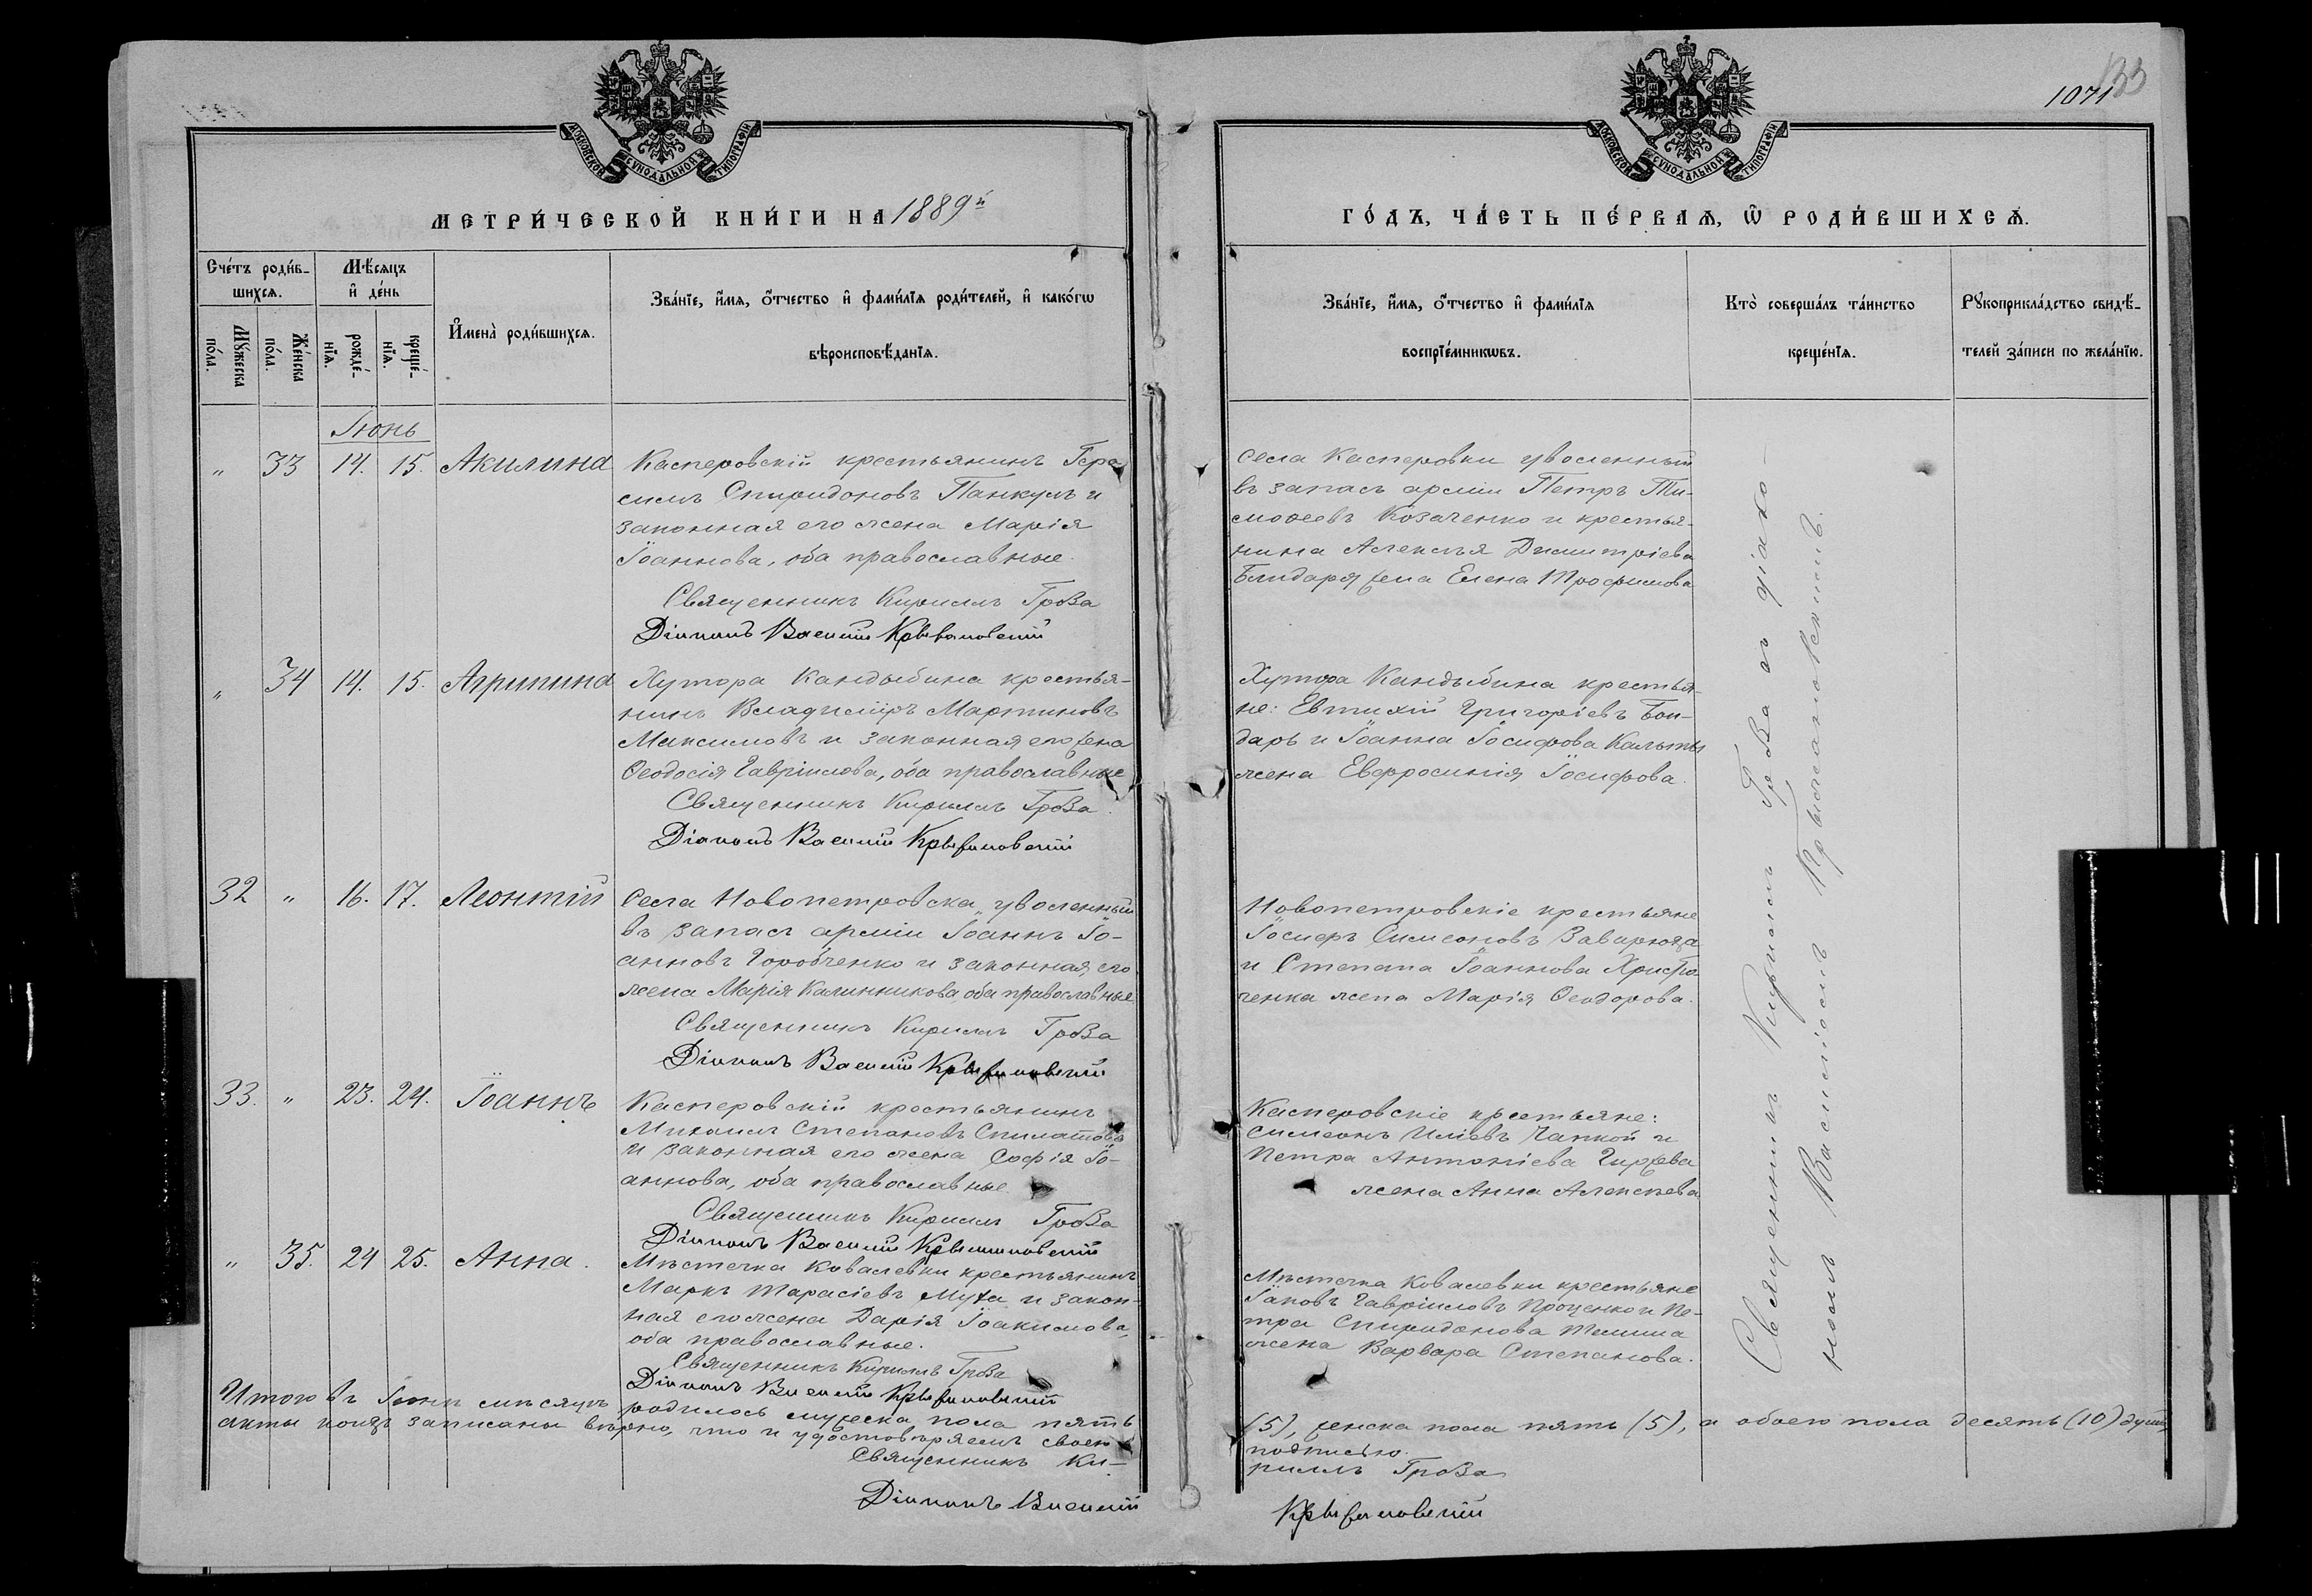 1071
133
МОСКОВСКОЙ СѴНОДАЛЬНОЙ ТИПОГРАФІИ
МОСКОВСКОЙ СѴНОДАЛЬНОЙ ТИПОГРАФІИ
МЕТРИ́ЧЕСКОЙ КНИ́ГИ НА 1889й
ГО́ДЪ, ЧА́СТЬ ПЕ́РВАѦ, Ѡ РОДИ́ВШИХСѦ.
Сче́тъ роди́в-
шихсѧ.
Мꙋ́жеска
по́ла.
Же́нска
по́ла.
Мѣ́сѧцъ
и҆ де́нь
рожде́-
нїѧ.
креще́-
нїѧ.
И҆мена̀ роди́вшихсѧ.
Зва́нїе, и҆́мѧ, о҆́тчество и҆ фами́лїѧ роди́телей, и҆ како́гѡ
вѣроисповѣ́данїѧ.
Зва́нїе, и҆́мѧ, о҆́тчество и҆ фами́лїѧ
воспрїе́мникѡвъ.
Кто̀ соверша́лъ та́инство
креще́нїѧ.
Рꙋкоприкла́дство свидѣ́-
телей за́писи по жела́нїю.
Іюнь
" 33 14. 15. Акилина
Касперовскій крестьянинъ Гера
симъ Спиридоновъ Панкулъ и
законная его жена Марія
Іоаннова, оба православные.
Священникъ Кириллъ Гроза
Діаконъ Василій Крыжановскій
Села Касперовки уволенный
въ запасъ арміи Петръ Ти-
моѳеевъ Козаченко и крестья-
нина Алексѣя Димитріева
Блидаря жена Елена Трофимова
" 34 14. 15. Агрипина
Хутора Кандыбина крестья-
нинъ Владиміръ Мартиновъ
Максимовъ и законная его жена
Ѳеодосія Гавріилова, оба православные
Священникъ Кириллъ Гроза.
Діаконъ Василій Крыжановскій
Хутора Кандыбина крестья-
не: Евтихій Григоріевъ Бон-
дарь и Іоанна Іосифова
жена Евфросинія Іосифова.
32 " 16. 17. Леонтій
Села Новопетровска уволенный
въ запасъ арміи Іоаннъ Іо-
анновъ Горобченко и законная его
жена Марія Калинникова оба православные
Священникъ Кириллъ Гроза
Діаконъ Василій Крыжановскій
Новопетровскіе крестьяне
Іосифъ Симеоновъ
и Степана Іоаннова Христо
ченка жена Марія Ѳеодорова.
33. " 23. 24. Іоаннъ
Касперовскій крестьянинъ
Михаилъ Степановъ
и законная его жена Софія Іо-
аннова, оба православные.
Священникъ Кириллъ Гроза
Діаконъ Василій Крыжановскій
Касперовскіе крестьяне:
Симеонъ Иліевъ Чапкой и
Петра Антоніева
жена Анна Алексѣева
" 35. 24 25. Анна.
Мѣстечка Ковалевки крестьянинъ
Маркъ Тарасіевъ Муха и закон-
ная его жена Дарія Іоакимова,
оба православные.
Священникъ Кириллъ Гроза
Діаконъ Василій Крыжановскій
Мѣстечка Ковалевки крестьяне
Іаковъ Гавріиловъ Проценко и Пе-
тра Спиридонова
жена Варвара Степанова.
Священникъ Кириллъ Гроза съ діако-
номъ Василіемъ Крыжановскимъ.
Итого въ Іюнѣ мѣсяцѣ родилось мужеска пола пять (5), женска пола пять (5), а обоего пола десять (10) душъ,
акты коихъ записаны вѣрно, что и удостовѣряемъ своею подписью.
Священникъ Ки- риллъ Гроза
Діаконъ Василій Крыжановскій